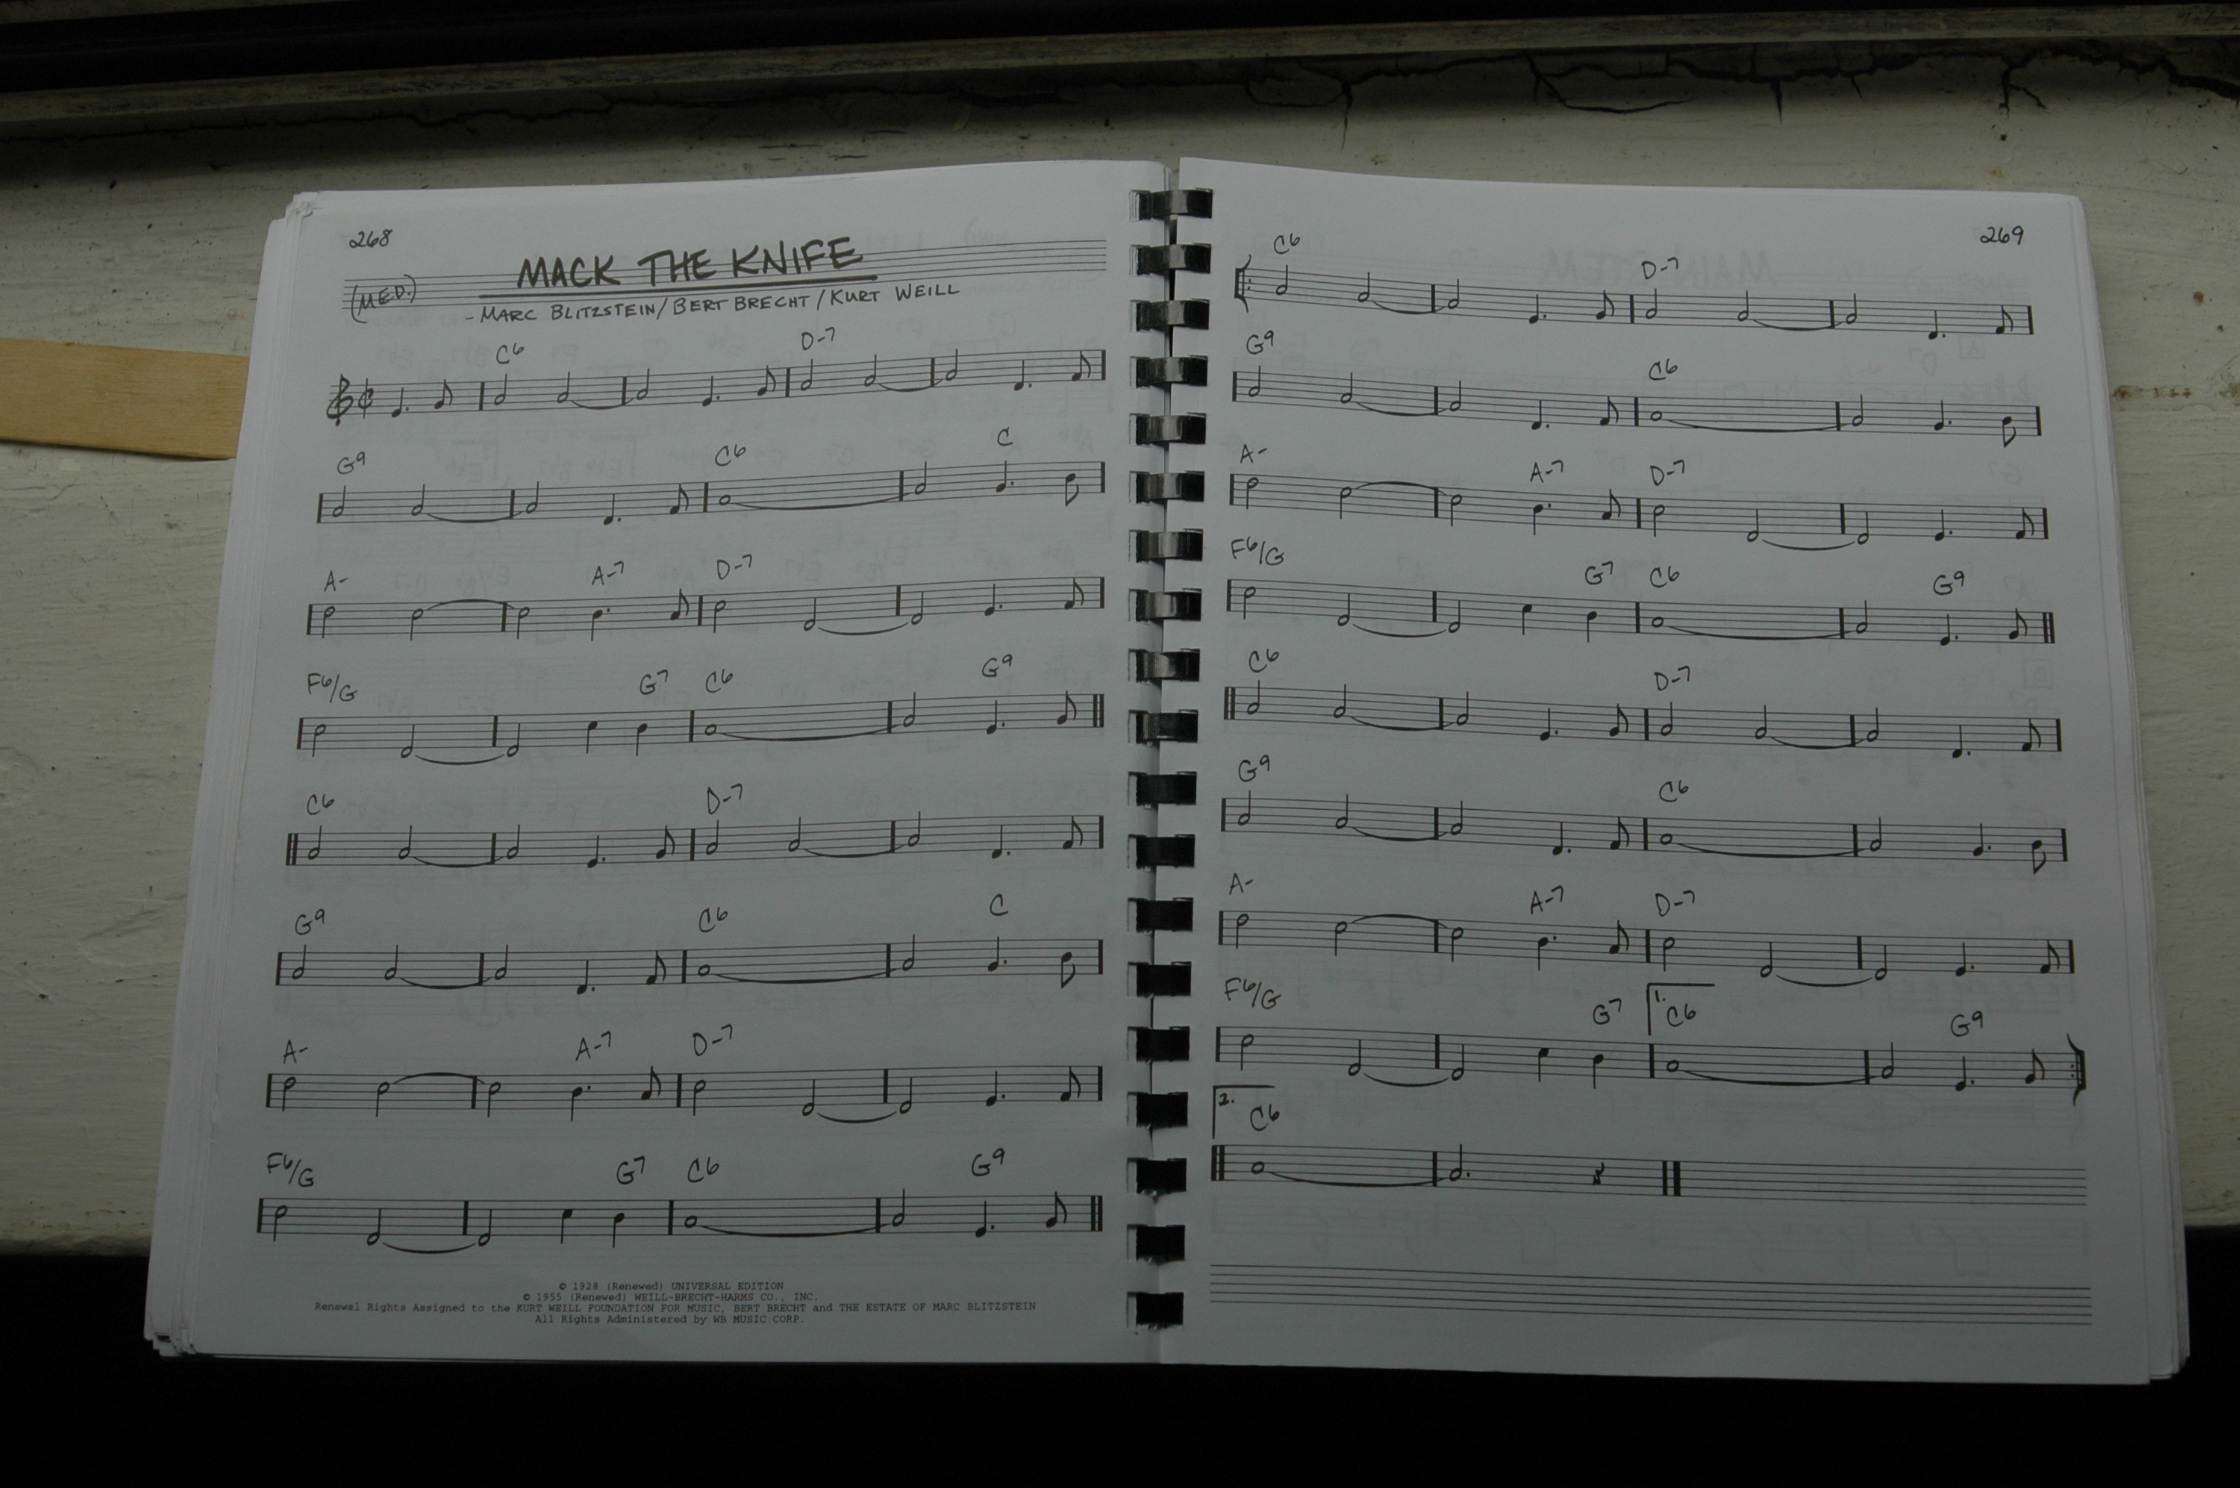 268
MACK THE KNIFE
(MED.)
- MARC BLITZSTEIN/BERT BRECHT/KURT WEILL
C6 D-7
G9 C6 C
A- A-7 D-7
F6/G G7 C6 G9
C6 D-7
G9 C6 C
A- A-7 D-7
F6/G G7 C6 G9
© 1928 (Renewed) UNIVERSAL EDITION
© 1955 (Renewed) WEILL-BRECHT-HARMS CO., INC.
Renewal Rights Assigned to the KURT WEILL FOUNDATION FOR MUSIC, BERT BRECHT and THE ESTATE OF MARC BLITZSTEIN
All Rights Administered by WB MUSIC CORP.
269
C6 D-7
G9 C6
A- A-7 D-7
F6/G G7 C6 G9
C6 D-7
G9 C6
A- A-7 D-7
F6/G G7 1. C6 G9
2. C6